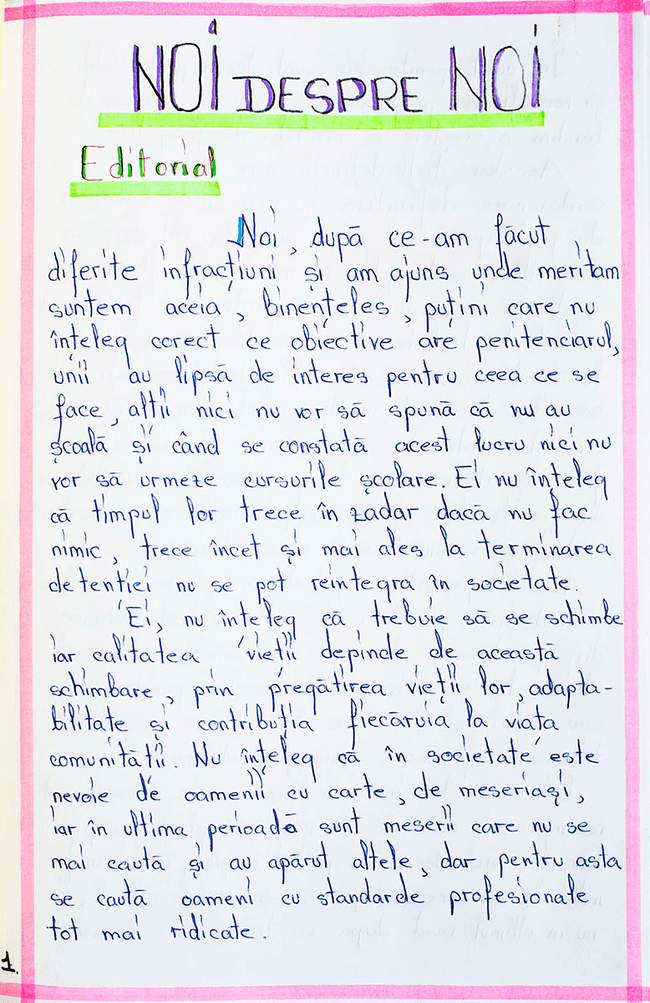 NOI DESPRE NOI
Editorial
Noi, după ce-am făcut
diferite infracțiuni și am ajuns unde meritam
suntem aceia, bineînțeles, puțini care nu
înțeleg corect ce obiective are penitenciarul,
unii au lipsă de interes pentru ceea ce se
face, alții nici nu vor să spună că nu au
școală și când se constată acest lucru nici nu
vor să urmeze cursurile școlare. Ei nu înțeleg
că timpul lor trece în zadar dacă nu fac
nimic, trece încet și mai ales la terminarea
detenției nu se pot reintegra în societate.
Ei, nu înțeleg că trebuie să se schimbe
iar calitatea vieții depinde de această
schimbare, prin pregătirea vieții lor, adapta-
bilitate și contribuția fiecăruia la viața
comunității. Nu înțeleg că în societate este
nevoie de oamenii cu carte, de meseriași,
iar în ultima perioadă sunt meserii care nu se
mai caută și au apărut altele, dar pentru asta
se caută oameni cu standarde profesionale
tot mai ridicate.
1.